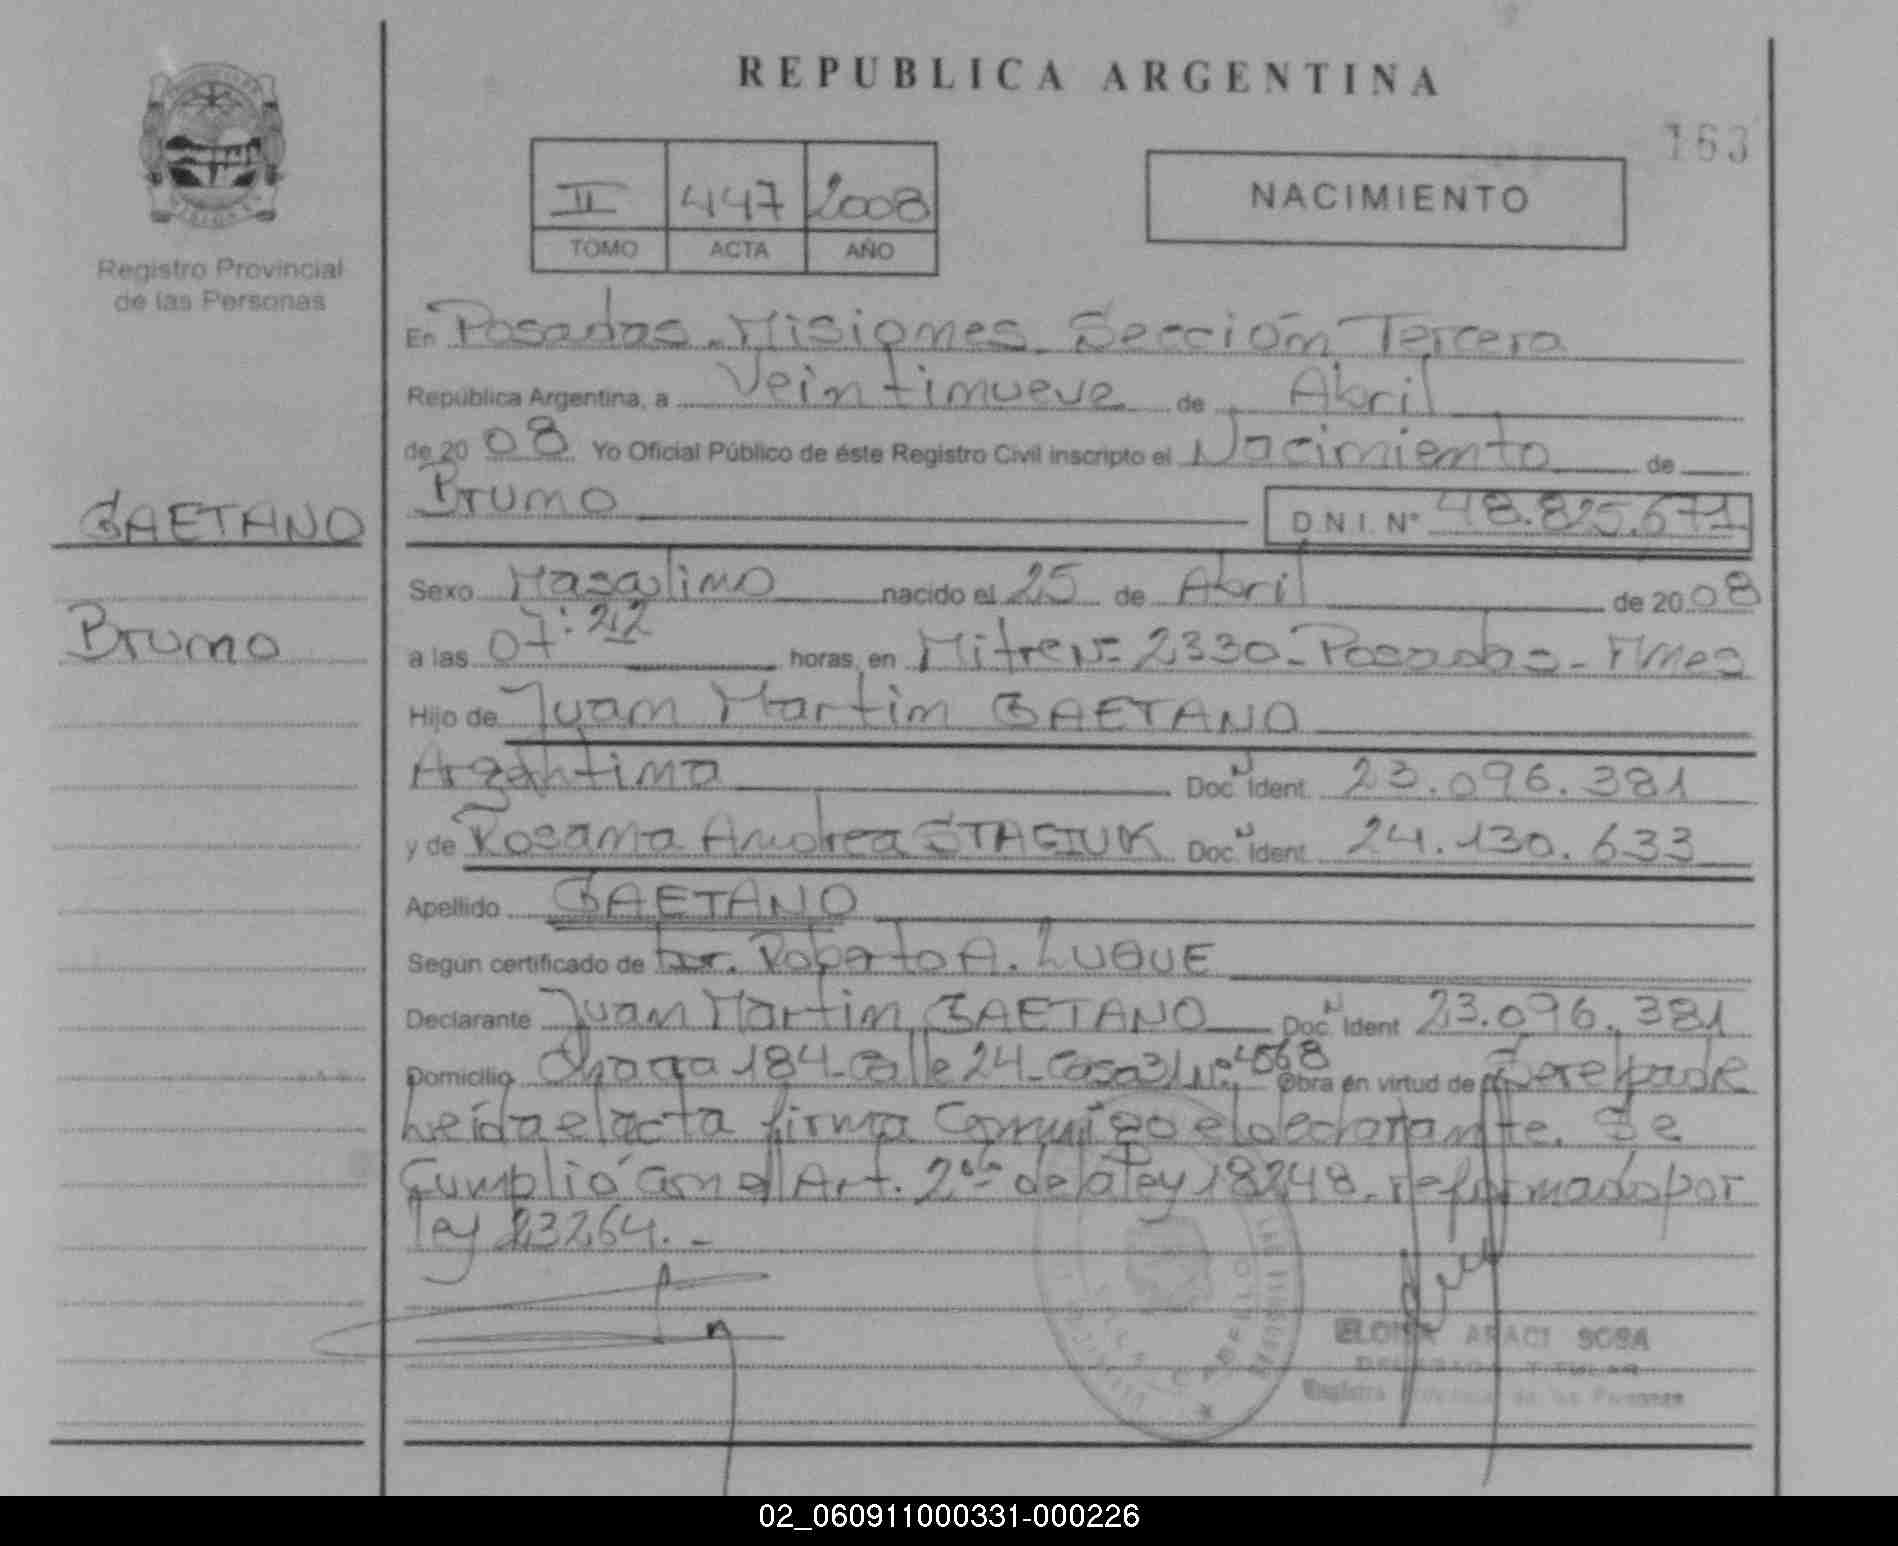 REPUBLICA ARGENTINA
163
II 447 2008
TOMO ACTA AÑO
NACIMIENTO
Registro Provincial
de las Personas
GAETANO
Bruno
En Posadas - Misiones Sección Tercera
República Argentina, a Veintinueve de Abril
de 20 08 Yo Oficial Público de éste Registro Civil inscripto el Nacimiento de
Bruno D N I. Nº 48.825.671
Sexo Masculino nacido el 25 de Abril de 20 08
a las 07:22 horas, en Mitre Nº 2330 - Posadas - Mnes
Hijo de Juan Martin GAETANO
Argentino Doc. N Ident. 23.096.381
y de Rosana Andrea STACIUK Doc. N Ident. 24.130.633
Apellido GAETANO
Según certificado de Dr. Roberto A. LUQUE
Declarante Juan Martin GAETANO Doc. N Ident 23.096.381
Domicilio Chacra 184 - Calle 24 - Casa Nº 4568 Obra en virtud de Ser el padre
Leída el acta firma Conmigo el declarante. Se
Cumplió con el Art. 2do de la Ley 18248 reformado por
Ley 23264. -
ELOISA ARACI SOSA
DELEGADA TITULAR
Registro Provincial de las Personas
02_060911000331-000226